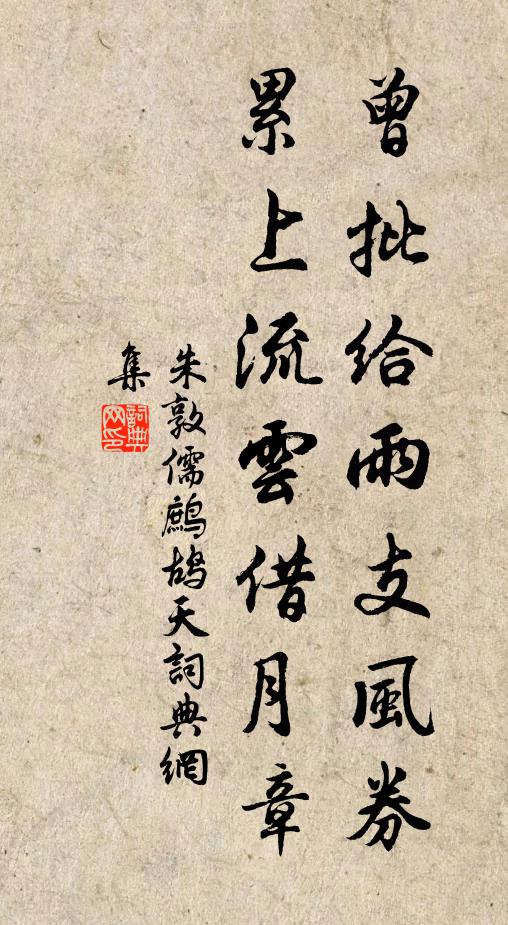 曾批給雨支風券
累上流雲借月章
朱敦儒鷓鴣天詞典網
集
詞典網印